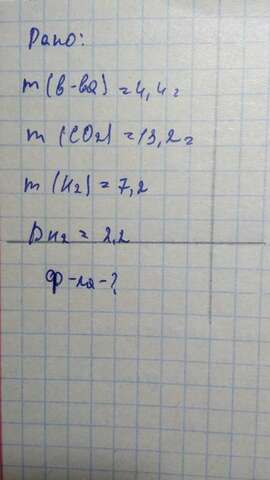 Дано:
m (в-ва) = 4,4 г
m (CO₂) = 13,2 г
m (H₂) = 7,2
Dн₂ = 2,2
Ф-ла-?